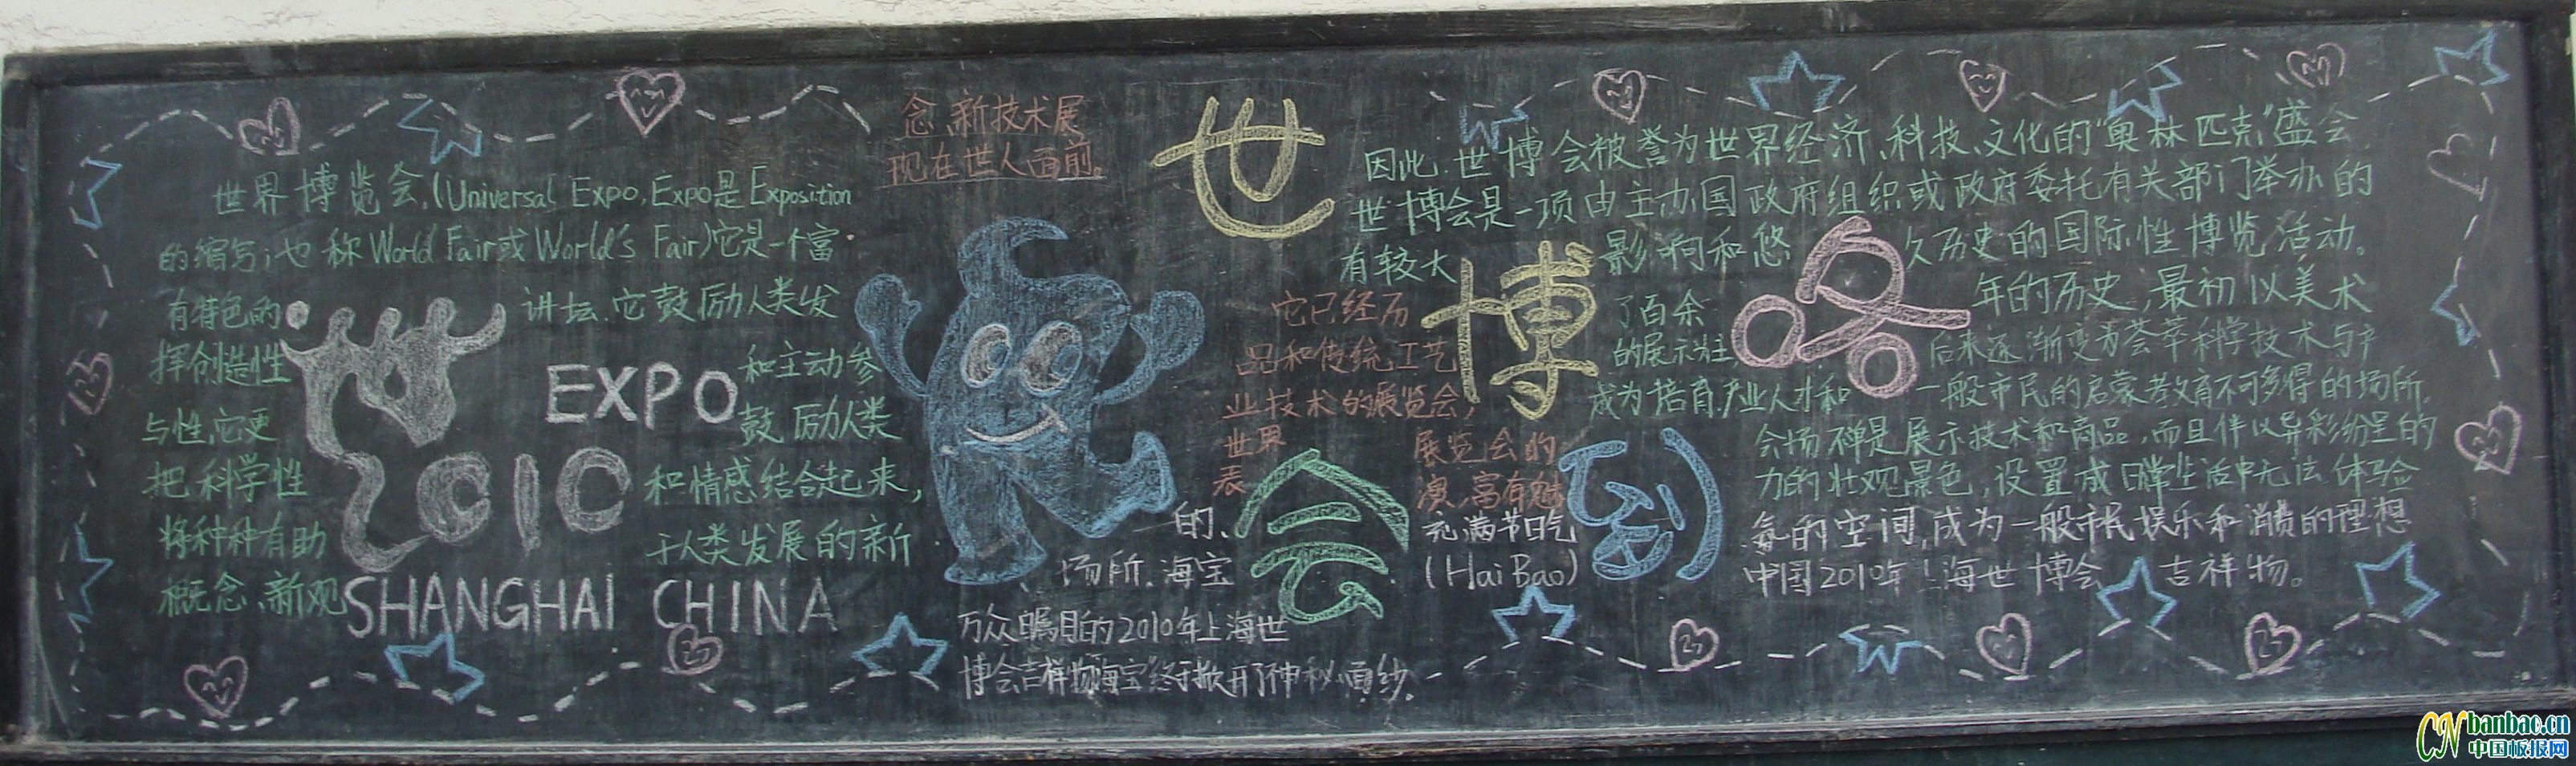 世界博览会,(Universal Expo,Expo是Exposition
的缩写;也称World Fair或World's Fair)它是一个富
有特色的 讲坛.它鼓励人类发
挥创造性 和主动参
与性,它更 鼓励人类
把科学性 和情感结合起来,
将种种有助 于人类发展的新
概念、新观
EXPO
2010
SHANGHAI CHINA
念、新技术展
现在世人面前。
世
博
会
到
因此,世博会被誉为世界经济、科技、文化的“奥林匹克”盛会
世博会是一项由主办国政府组织或政府委托有关部门举办的
有较大 影响和悠 久历史的国际性博览活动。
它已经历 了百余 年的历史,最初以美术
品和传统工艺 的展示为主, 后来逐渐变为荟萃科学技术与产
业技术的展览会, 成为培育产业人才和 一般市民的启蒙教育不可多得的场所.
世界 展览会的 会场不单是展示技术和商品,而且伴以异彩纷呈的
表 演,富有魅 力的壮观景色,设置成日常生活中无法体验
的、 充满节日气 氛的空间,成为一般市民娱乐和消费的理想
场所.海宝 (Hai Bao) 中国2010年上海世博会 吉祥物。
万众瞩目的2010年上海世
博会吉祥物“海宝”终于掀开了神秘面纱.
CN banbao.cn
中国板报网